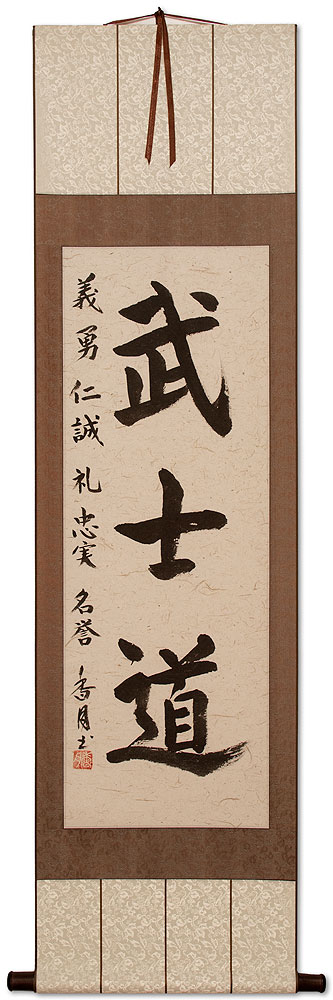 武士道
義勇仁誠礼忠実名誉 香月書